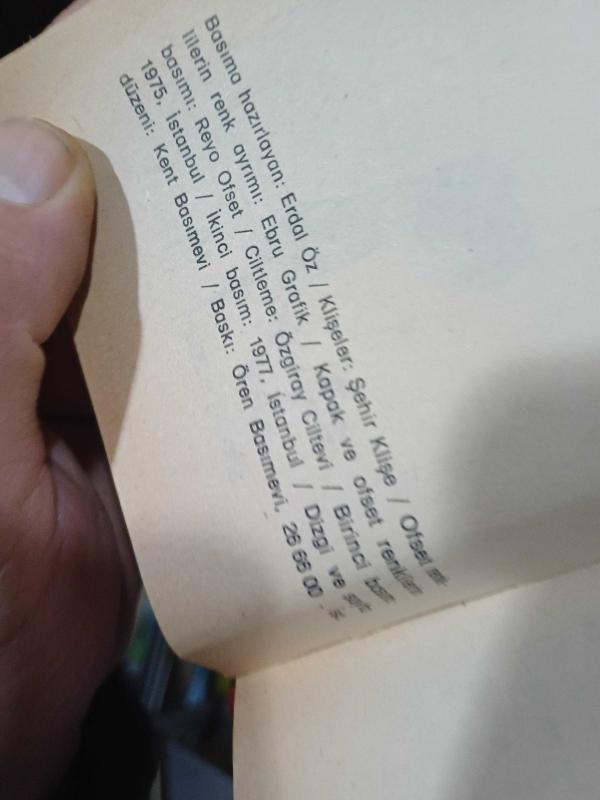 Basıma hazırlayan: Erdal Öz / Klişeler: Şehir Klişe / Ofset
lilerin renk ayrımı: Ebru Grafik / Kapak ve ofset renkleri
basımı: Reyo Ofset / Ciltleme: Özgiray Ciltevi / Birinci
1975, İstanbul / İkinci basım: 1977, İstanbul / Dizgi ve
düzeni: Kent Basımevi / Baskı: Ören Basımevi, 26 66 00